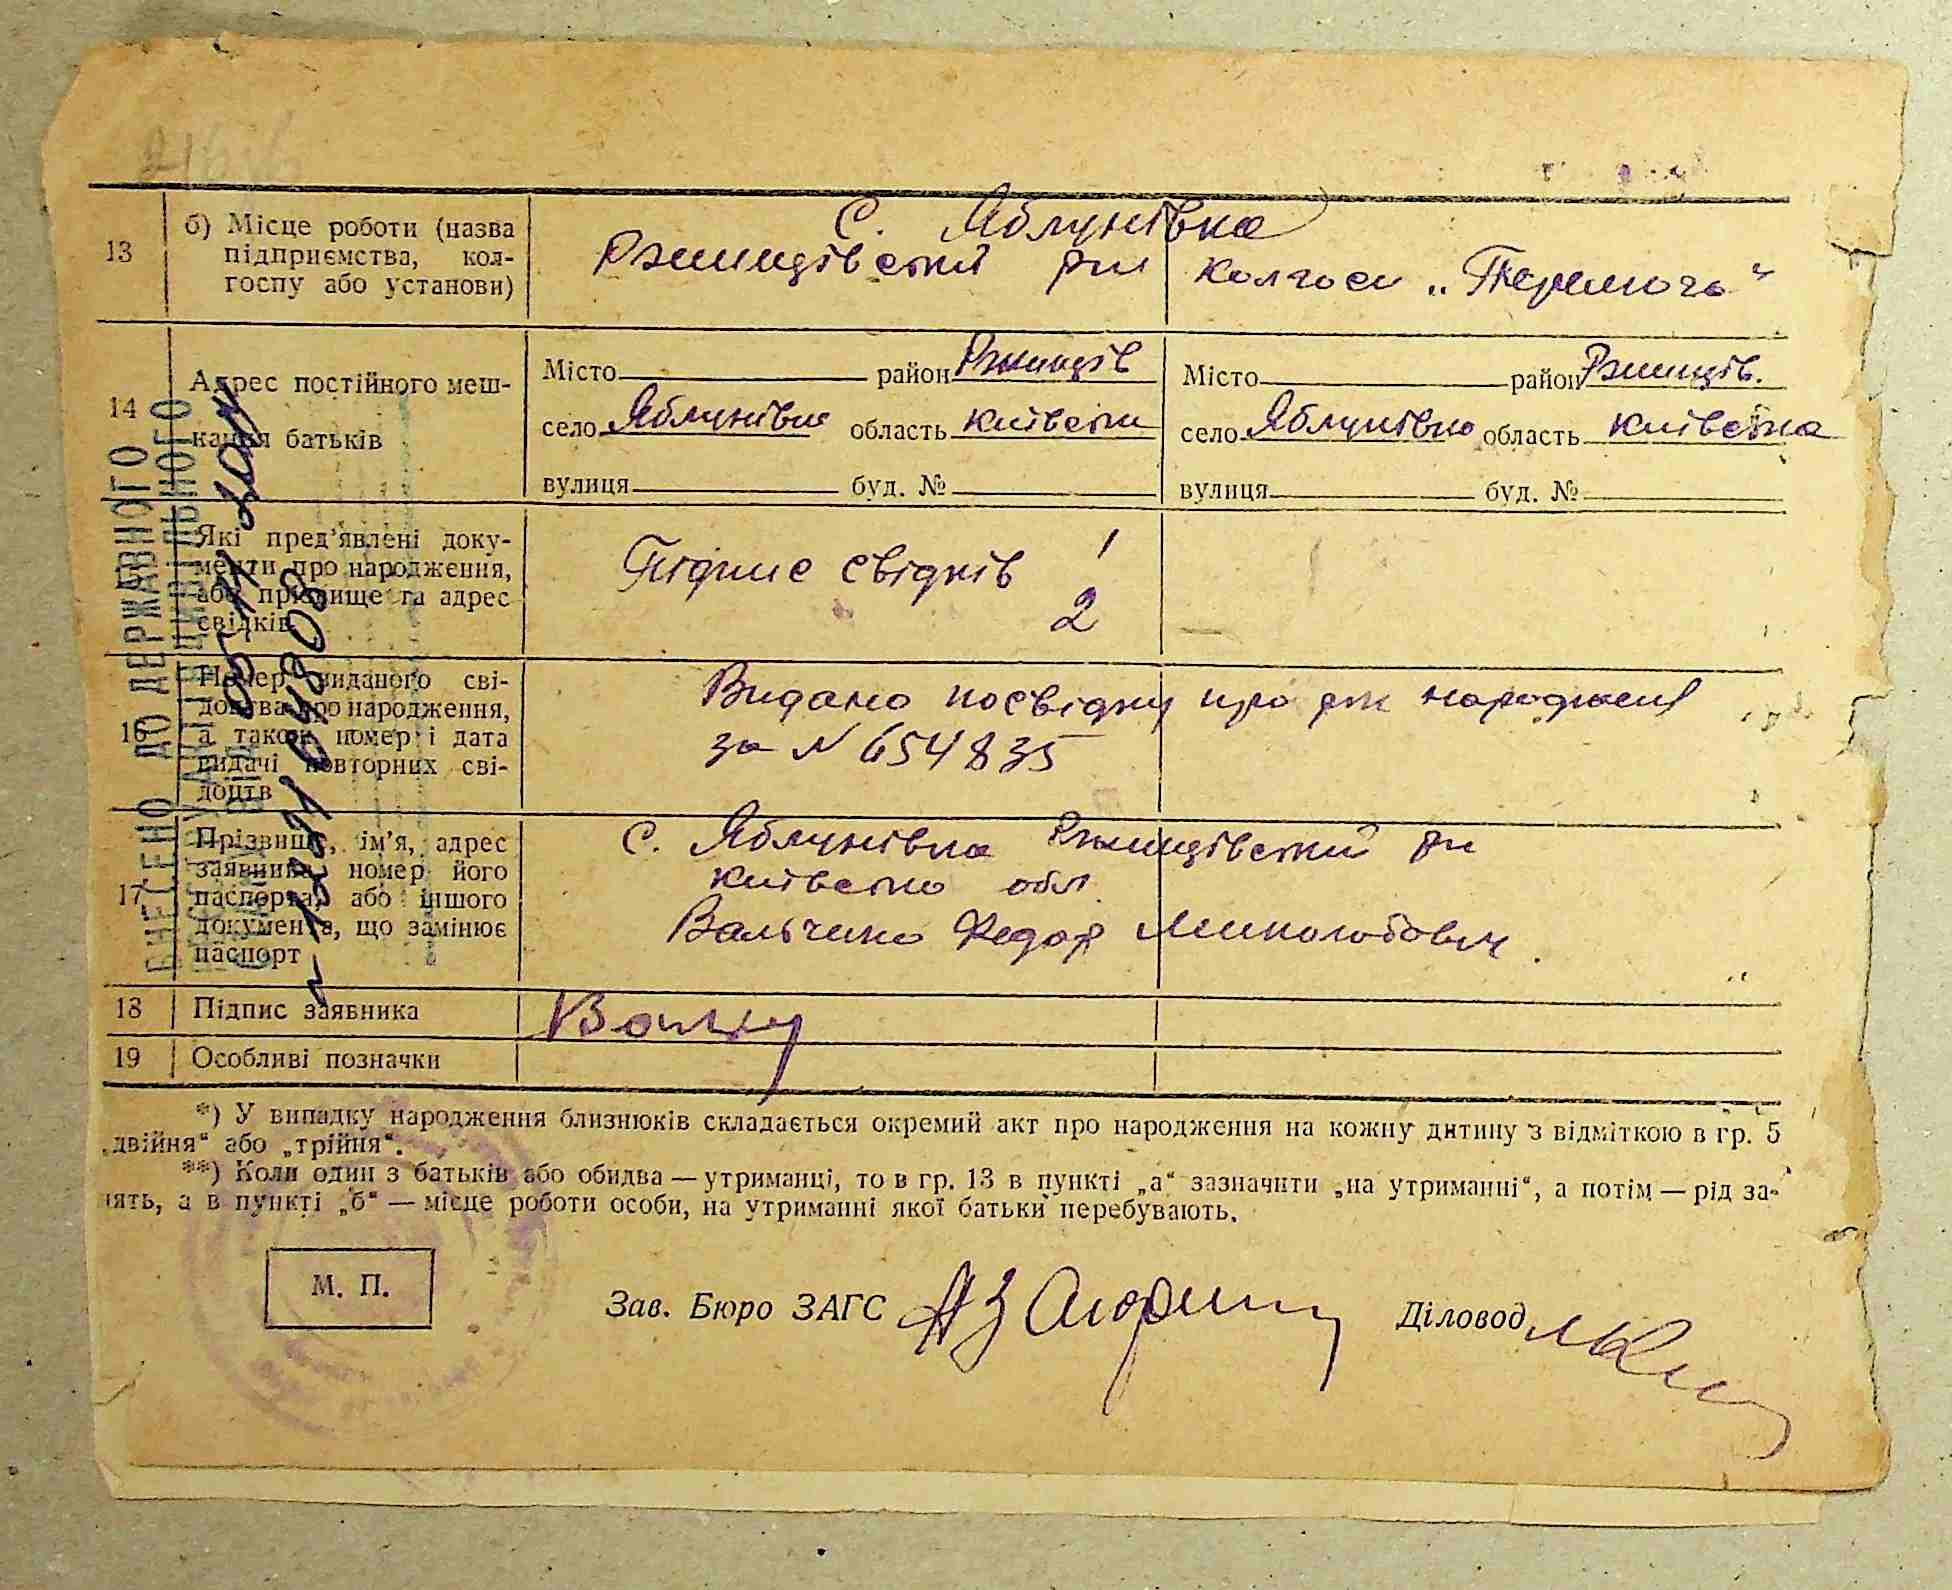 13
б) Місце роботи (назва
підприємства, кол-
госпу або установи)
С. Яблунівка
Ржищівський рн
колгосп „Перемога“
14
Адрес постійного меш-
кання батьків
Місто район Ржищів
село Яблунівка область Київська
вулиця буд. №
Місто район Ржищів.
село Яблунівка область Київська
вулиця буд. №
Які пред'явлені доку-
менти про народження,
або прізвище та адрес
свідків
Підпис свідків 1
2
16
Номер виданого сві-
доцтва про народження,
а також номер і дата
видачі повторних сві-
доцтв
Видано посвідку про народження
за N 654835
17
Прізвище, ім'я, адрес
заявника, номер його
паспорта, або іншого
документа, що замінює
паспорт
С. Яблунівка Ржищівський рн
Київська обл
Вальченко Федор Миколайович.
18 Підпис заявника
19 Особливі позначки
*) У випадку народження близнюків складається окремий акт про народження на кожну дитину з відміткою в гр. 5
„двійня“ або „трійня“.
**) Коли один з батьків або обидва — утриманці, то в гр. 13 в пункті „а“ зазначити „на утриманні“, а потім — рід за-
нять, а в пункті „б“ — місце роботи особи, на утриманні якої батьки перебувають.
М. П.
Зав. Бюро ЗАГС
Діловод
ВНЕСЕНО ДО ДЕРЖАВНОГО